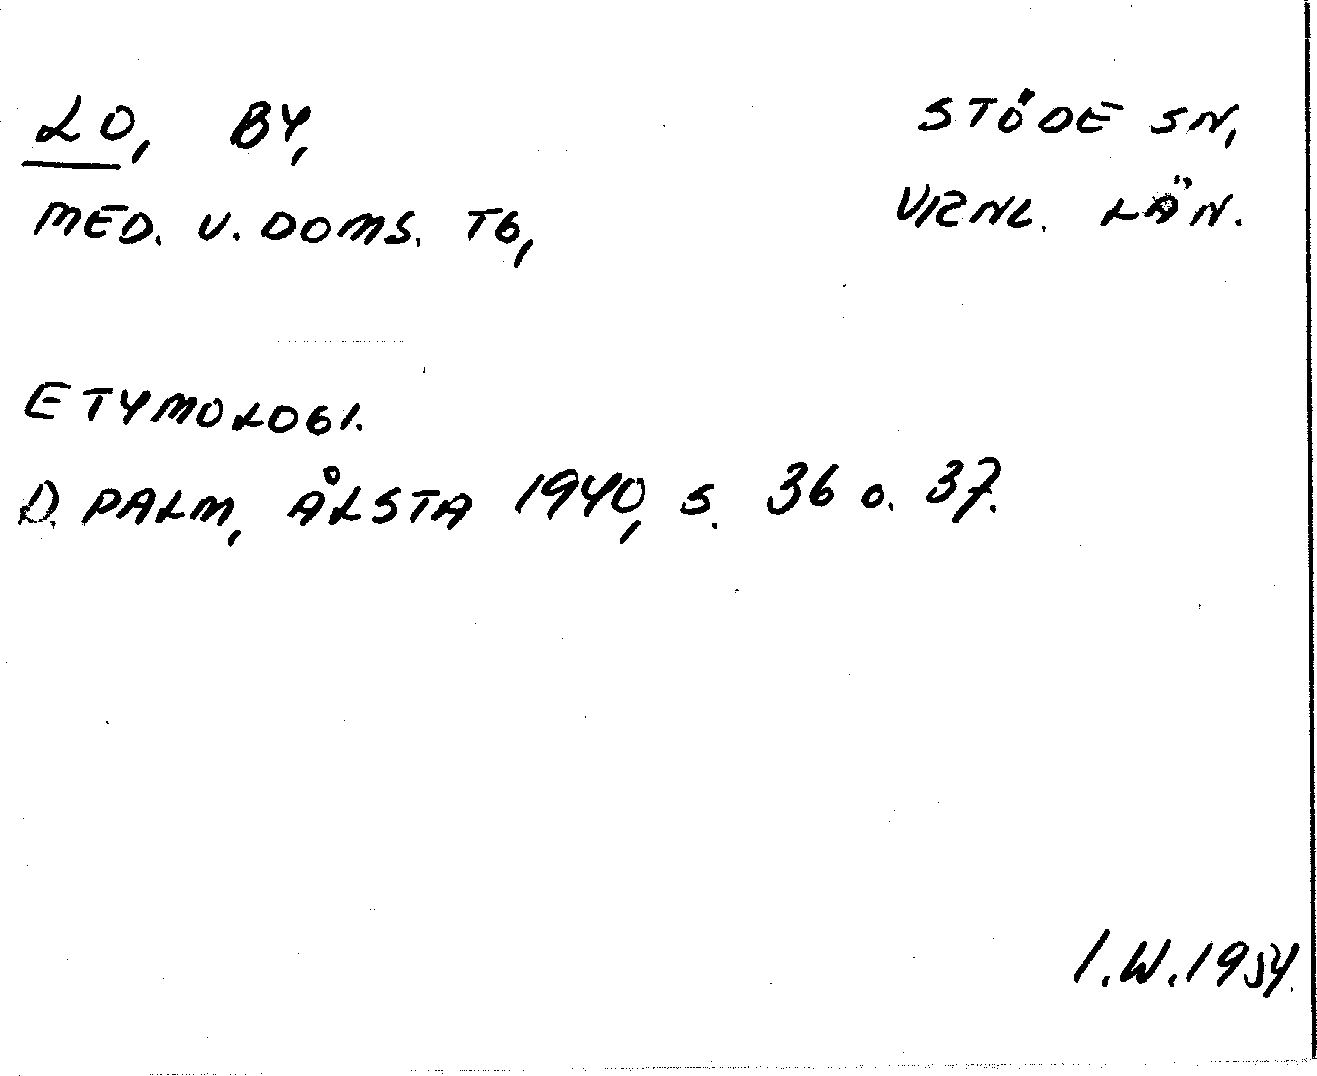 LO, BY,
STÖDE SN,
MED. V. DOMS. TG,
VRNL. LÄN.
ETYMOLOGI.
D. PALM, ÅLSTA 1940, S. 36 O. 37.
I.W.1954.